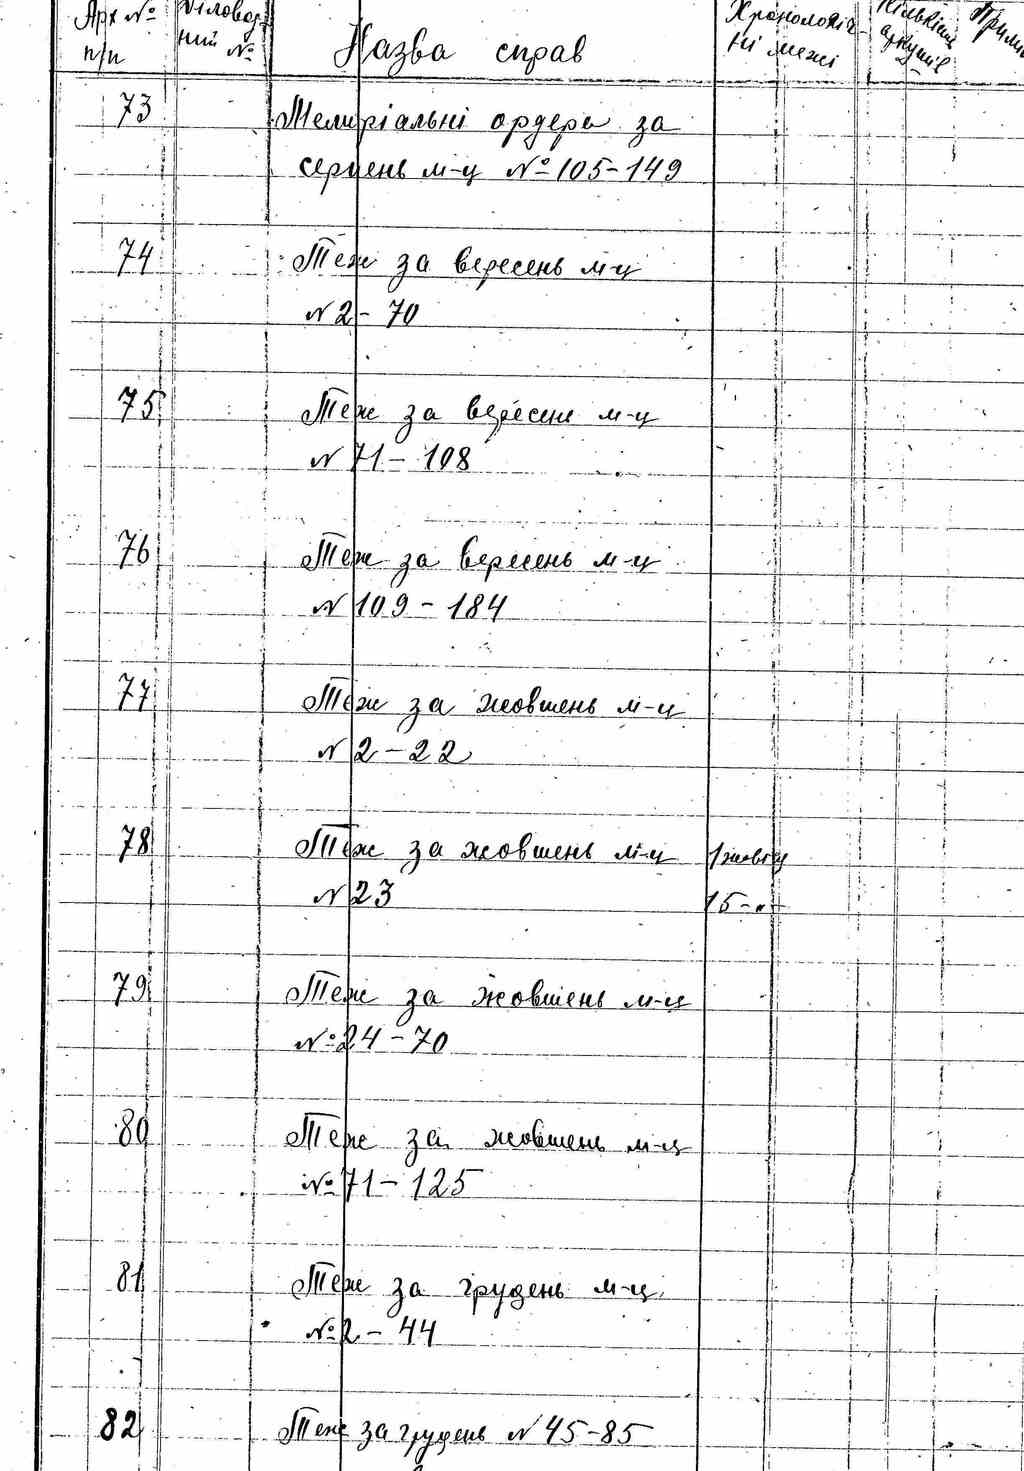 Арх № п/п Діловод- ний № Назва справ Хронологіч- ні межі Кількість аркушів Прим
73 Меморіальні ордера за
серпень м-ц № 105-149
74 Теж за вересень м-ц
N 2 - 70
75 Теж за вересень м-ц
N 71 - 108
76 Теж за вересень м-ц
N 109 - 184
77 Теж за жовтень м-ц
N 2 - 22
78 Теж за жовтень м-ц 1 жовт
N 23 15 -"-
79 Теж за жовтень м-ц
№ 24 - 70
80 Теж за жовтень м-ц
№ 71 - 125
81 Теж за грудень м-ц
№ 2 - 44
82 Теж за грудень N 45-85